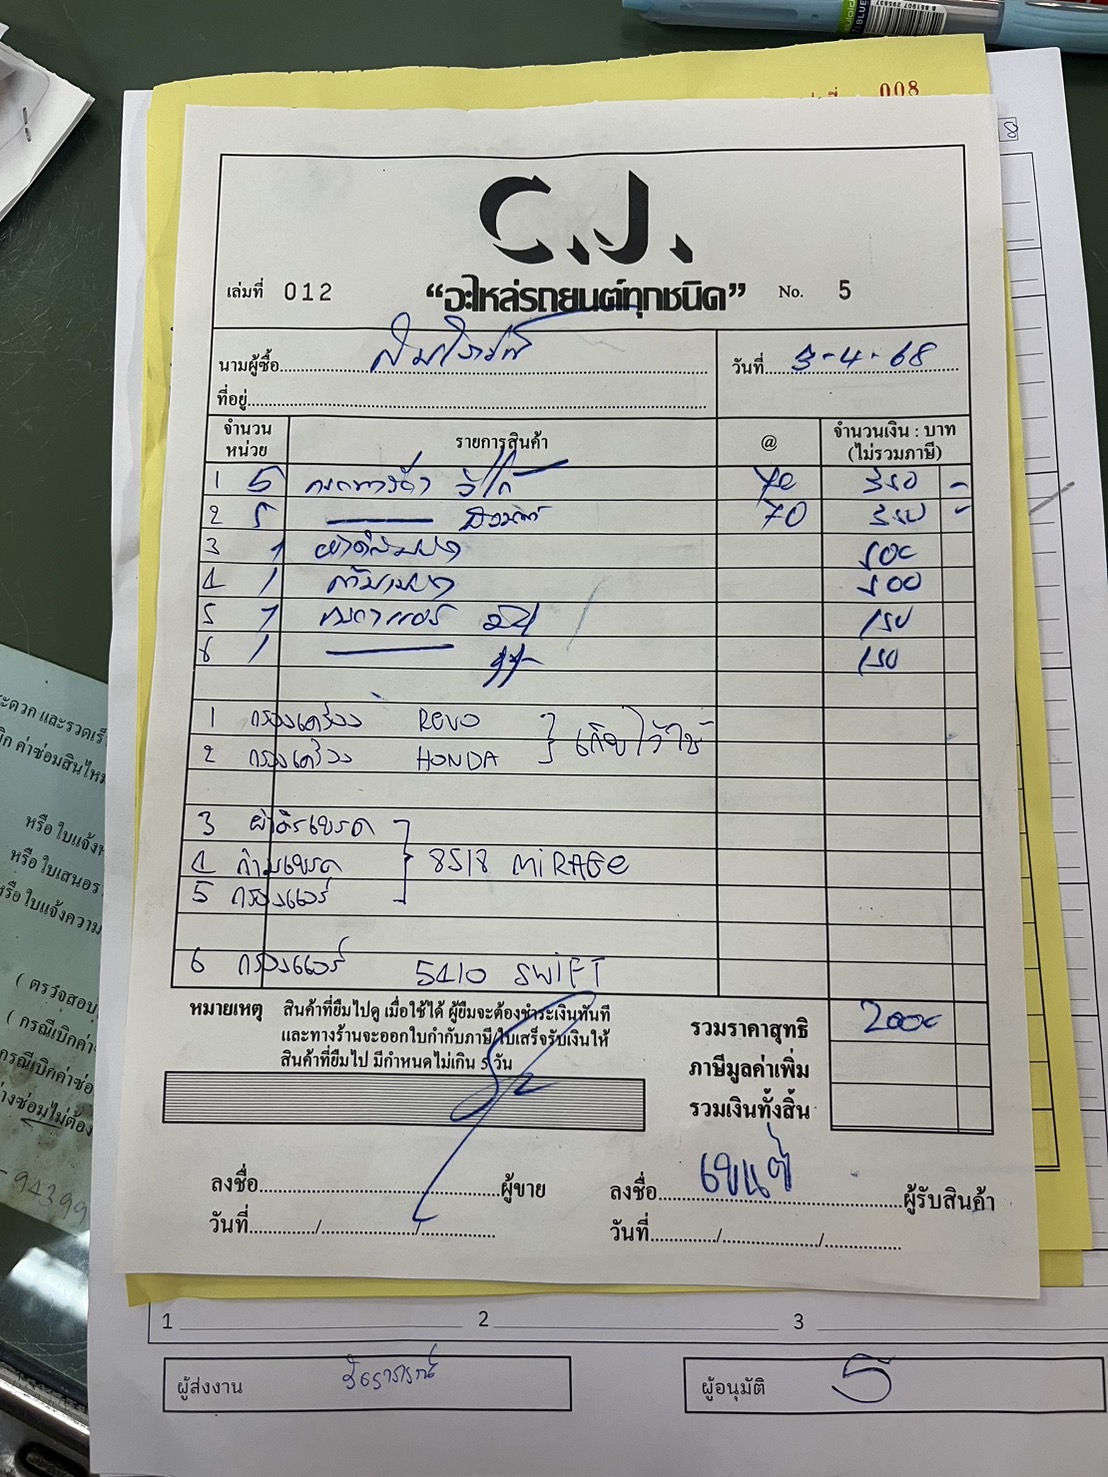 8 851907 295837
BLUE
008
8
C.J.
เล่มที่ 012 “อะไหล่รถยนต์ทุกชนิด” No. 5
นามผู้ซื้อ วันที่ 3-4-68
ที่อยู่
จำนวน หน่วย รายการสินค้า @ จำนวนเงิน : บาท (ไม่รวมภาษี)
1 5 70 350 -
2 5 70 350 -
3 1 ผ้าดิสเบรค 500
4 1 ก้ามเบรค 500
5 1 กรองแอร์ 150
6 1 150
1 กรองเครื่อง REVO
เก็บไว้ใช้
2 กรองเครื่อง HONDA
3 ผ้าดิสเบรค
4 ก้ามเบรค 8518 MIRAGE
5 กรองแอร์
6 กรองแอร์ 5410 SWIFT
หมายเหตุ สินค้าที่ยืมไปดู เมื่อใช้ได้ ผู้ยืมจะต้องชำระเงินทันที
และทางร้านจะออกใบกำกับภาษี/ใบเสร็จรับเงินให้
สินค้าที่ยืมไป มีกำหนดไม่เกิน 5 วัน
รวมราคาสุทธิ 2000
ภาษีมูลค่าเพิ่ม
รวมเงินทั้งสิ้น
ลงชื่อ ผู้ขาย
วันที่ / /
ลงชื่อ ผู้รับสินค้า
วันที่ / /
สะดวก และรวดเร็
ค่าซ่อมสินไหม
หรือ ใบแจ้ง
หรือ ใบเสนอร
หรือ ใบแจ้งความ
( ตรวจสอบ
( กรณีเบิกค่า
กรณีเบิกค่าซ่อ
างซ่อมไม่ต้อง
94399
1 2 3
ผู้ส่งงาน
ผู้อนุมัติ